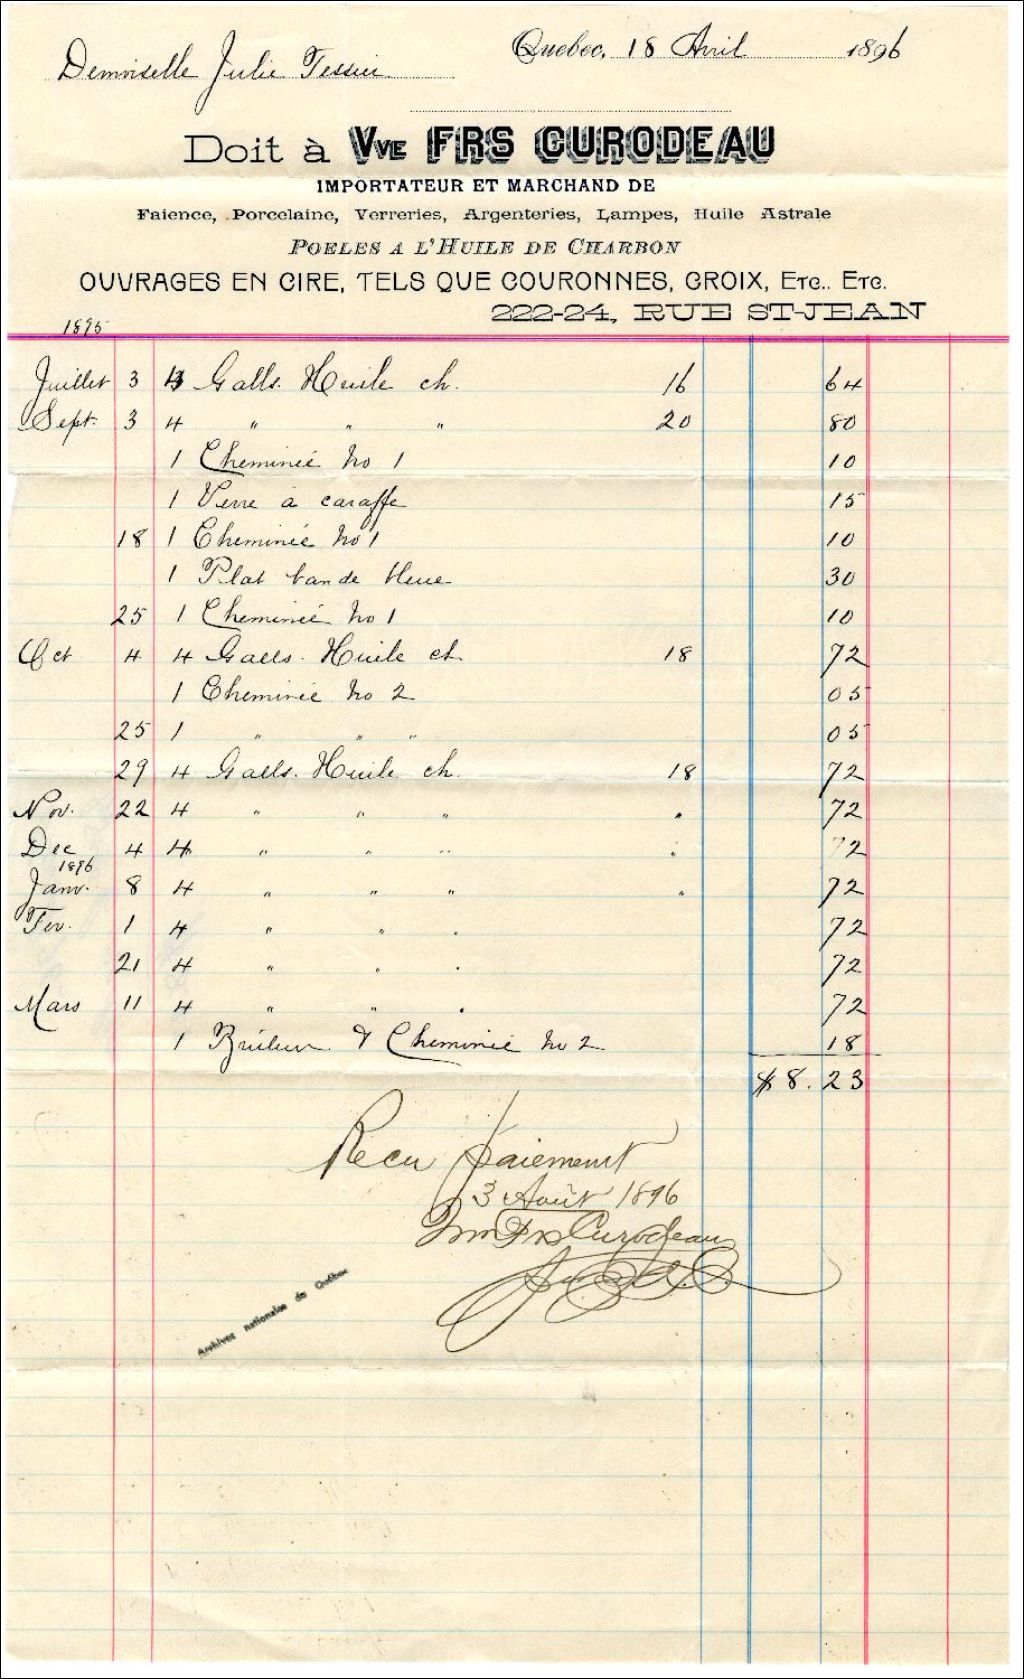 Quebec, 18 Avril 1896
Demoiselle Julie Tessier
Doit à Vve FRS CURODEAU
IMPORTATEUR ET MARCHAND DE
Faience, Porcelaine, Verreries, Argenteries, Lampes, Huile Astrale
POELES A L'HUILE DE CHARBON
OUVRAGES EN CIRE, TELS QUE COURONNES, CROIX, ETC.. ETC.
222-24, RUE ST-JEAN
1895
Juillet 3 4 Galls. Huile ch. 16 64
Sept. 3 4 " " " 20 80
1 Cheminée No 1 10
1 Verre a caraffe 15
18 1 Cheminée No 1 10
1 Plat bande bleue 30
25 1 Cheminée No 1 10
Oct 4 4 Galls. Huile ch. 18 72
1 Cheminée No 2 05
25 1 " " " 05
29 4 Galls. Huile ch. 18 72
Nov. 22 4 " " " " 72
Dec 4 4 " " " " 72
1896
Janv. 8 4 " " " " 72
Fev. 1 4 " " " 72
21 4 " " " 72
Mars 11 4 " " " 72
1 Brûleur & Cheminée No 2 18
$ 8. 23
Recu paiement
3 Août 1896
Frs Curodeau
Archives nationales de Québec